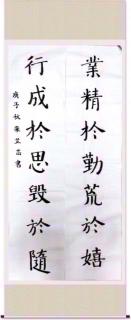 業精於勤荒於嬉
行成於思毀於隨
庚子秋朱芷芸書